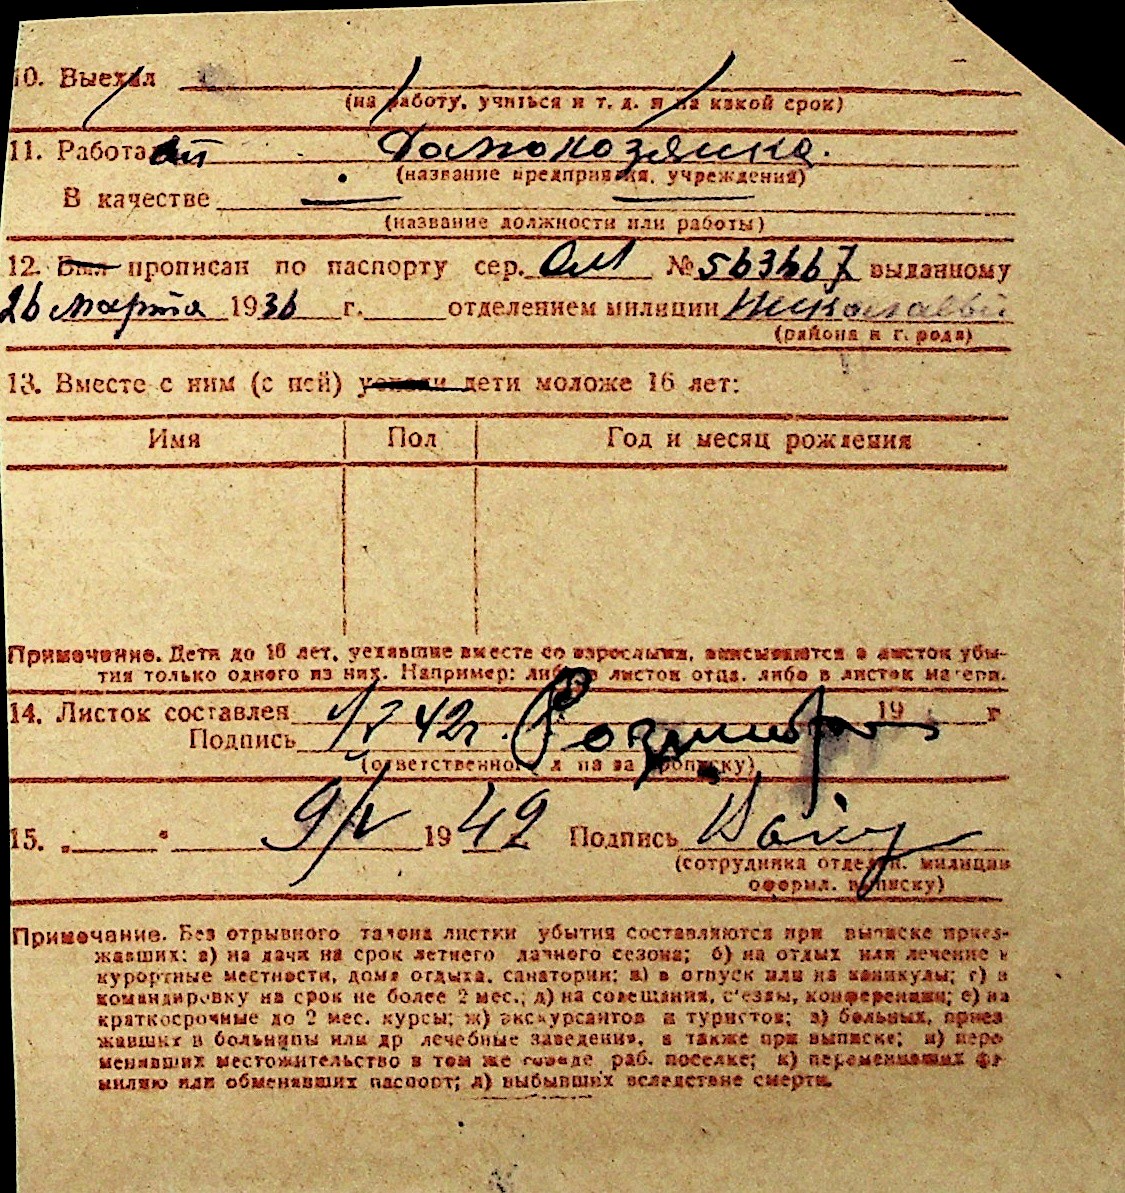 10. Выехал
(на работу, учиться и т. д. и на какой срок)
11. Работа Домохозяйка.
(название предприятия, учреждения)
В качестве
(название должности или работы)
12. Был прописан по паспорту сер. № выданному
26 марта 1936 г. отделением милиции Николаев
(района и города)
13. Вместе с ним (с ней) уехали дети моложе 16 лет:
Имя Пол Год и месяц рождения
Примечание. Дети до 16 лет, уехавшие вместе со взрослыми, вписываются в листок убы-
тия только одного из них. Например: либо в листок отца, либо в листок матери.
14. Листок составлен 19 г
Подпись 42г.
(ответственного л па за прописку)
15. „ “ 9/V 1942 Подпись
(сотрудника отделен. милиции
оформл. выписку)
Примечание. Без отрывного талона листки убытия составляются при выписке приез-
жавших: а) на дачи на срок летнего дачного сезона; б) на отдых или лечение в
курортные местности, дома отдыха, санатории; в) в отпуск или на каникулы; г) в
командировку на срок не более 2 мес.; д) на совещания, с'езды, конференции; е) на
краткосрочные до 2 мес. курсы; ж) экскурсантов и туристов; з) больных, приез
жавших в больницы или др лечебные заведения, а также при выписке; и) пере
менивших местожительство в том же городе, раб. поселке; к) переменивших фа
милию или обменявших паспорт; л) выбывших вследствие смерти.